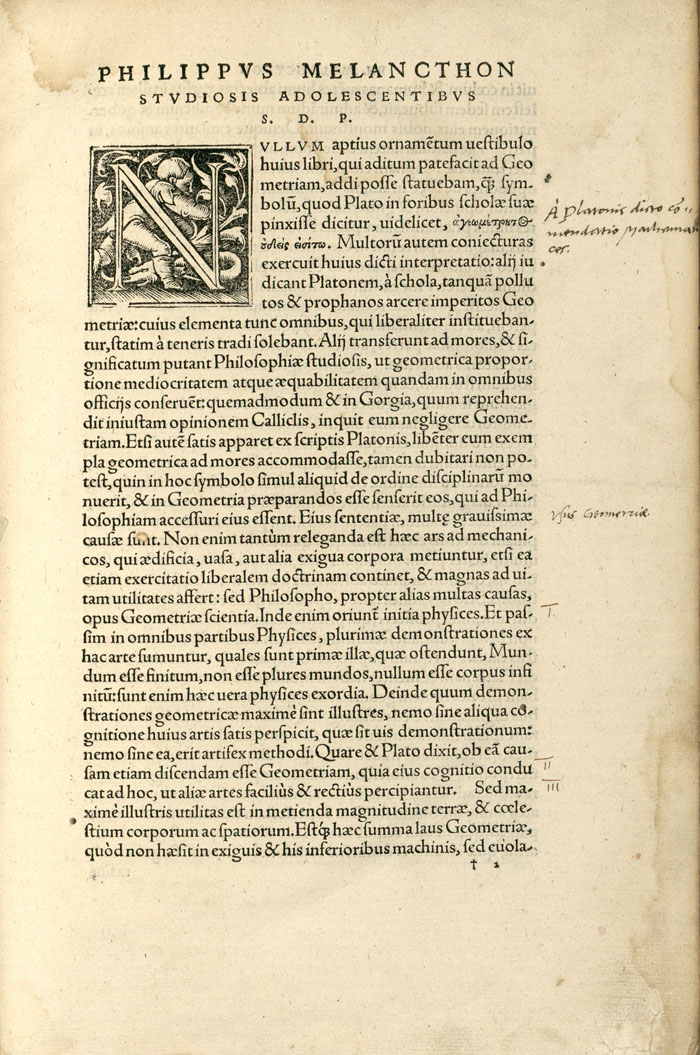 PHILIPPVS MELANCTHON
STVDIOSIS ADOLESCENTIBVS
S. D. P.
NVLLVM aptius ornamẽtum ueſtibulo
huius libri, qui aditum patefacit ad Geo
metriam, addi poſſe ſtatuebam, ꝙ̃ ſym-
bolũ, quod Plato in foribus ſcholæ ſuæ
pinxiſſe dicitur, uidelicet, ἀγεωμέτρητος
οὐδεὶς εἰσίτω. Multorũ autem coniecturas
exercuit huius dicti interpretatio: alij iu
dicant Platonem, à ſchola, tanquã pollu
tos & prophanos arcere imperitos Geo
metriæ: cuius elementa tunc omnibus, qui liberaliter inſtitueban-
tur, ſtatim à teneris tradi ſolebant. Alij transferunt ad mores, & ſi-
gnificatum putant Philoſophiæ ſtudioſis, ut geometrica propor-
tione mediocritatem atque æquabilitatem quandam in omnibus
officijs conſeruẽt: quemadmodum & in Gorgia, quum reprehen-
dit iniuſtam opinionem Calliclis, inquit eum negligere Geome-
triam. Etſi autẽ ſatis apparet ex ſcriptis Platonis, libẽter eum exem
pla geometrica ad mores accommodaſſe, tamen dubitari non po-
teſt, quin in hoc ſymbolo ſimul aliquid de ordine diſciplinarũ mo
nuerit, & in Geometria præparandos eſſe ſenſerit eos, qui ad Phi-
loſophiam acceſſuri eius eſſent. Eius ſententiæ, multę grauiſſimæ
cauſæ ſunt. Non enim tantùm releganda eſt hæc ars ad mechani-
cos, qui ædificia, uaſa, aut alia exigua corpora metiuntur, etſi ea
etiam exercitatio liberalem doctrinam continet, & magnas ad ui-
tam utilitates affert: ſed Philoſopho, propter alias multas cauſas,
opus Geometriæ ſcientia. Inde enim oriunt᷑ initia phyſices. Et paſ-
ſim in omnibus partibus Phyſices, plurimæ demonſtrationes ex
hac arte ſumuntur, quales ſunt primæ illæ, quæ oſtendunt, Mun-
dum eſſe finitum, non eſſe plures mundos, nullum eſſe corpus infi
nitũ: ſunt enim hæc uera phyſices exordia. Deinde quum demon-
ſtrationes geometricæ maximè ſint illuſtres, nemo ſine aliqua cõ-
gnitione huius artis ſatis perſpicit, quæ ſit uis demonſtrationum:
nemo ſine ea, erit artifex methodi. Quare & Plato dixit, ob eã cau-
ſam etiam diſcendam eſſe Geometriam, quia eius cognitio condu
cat ad hoc, ut aliæ artes faciliùs & rectiùs percipiantur. Sed ma-
ximè illuſtris utilitas eſt in metienda magnitudine terræ, & cœle-
ſtium corporum ac ſpatiorum. Eſtq́; hæc ſumma laus Geometriæ,
quòd non hæſit in exiguis & his inferioribus machinis, ſed euola-
† 2
À Platonis dicto cõ-
mendatio
Vſus Geometriæ
I
II
III